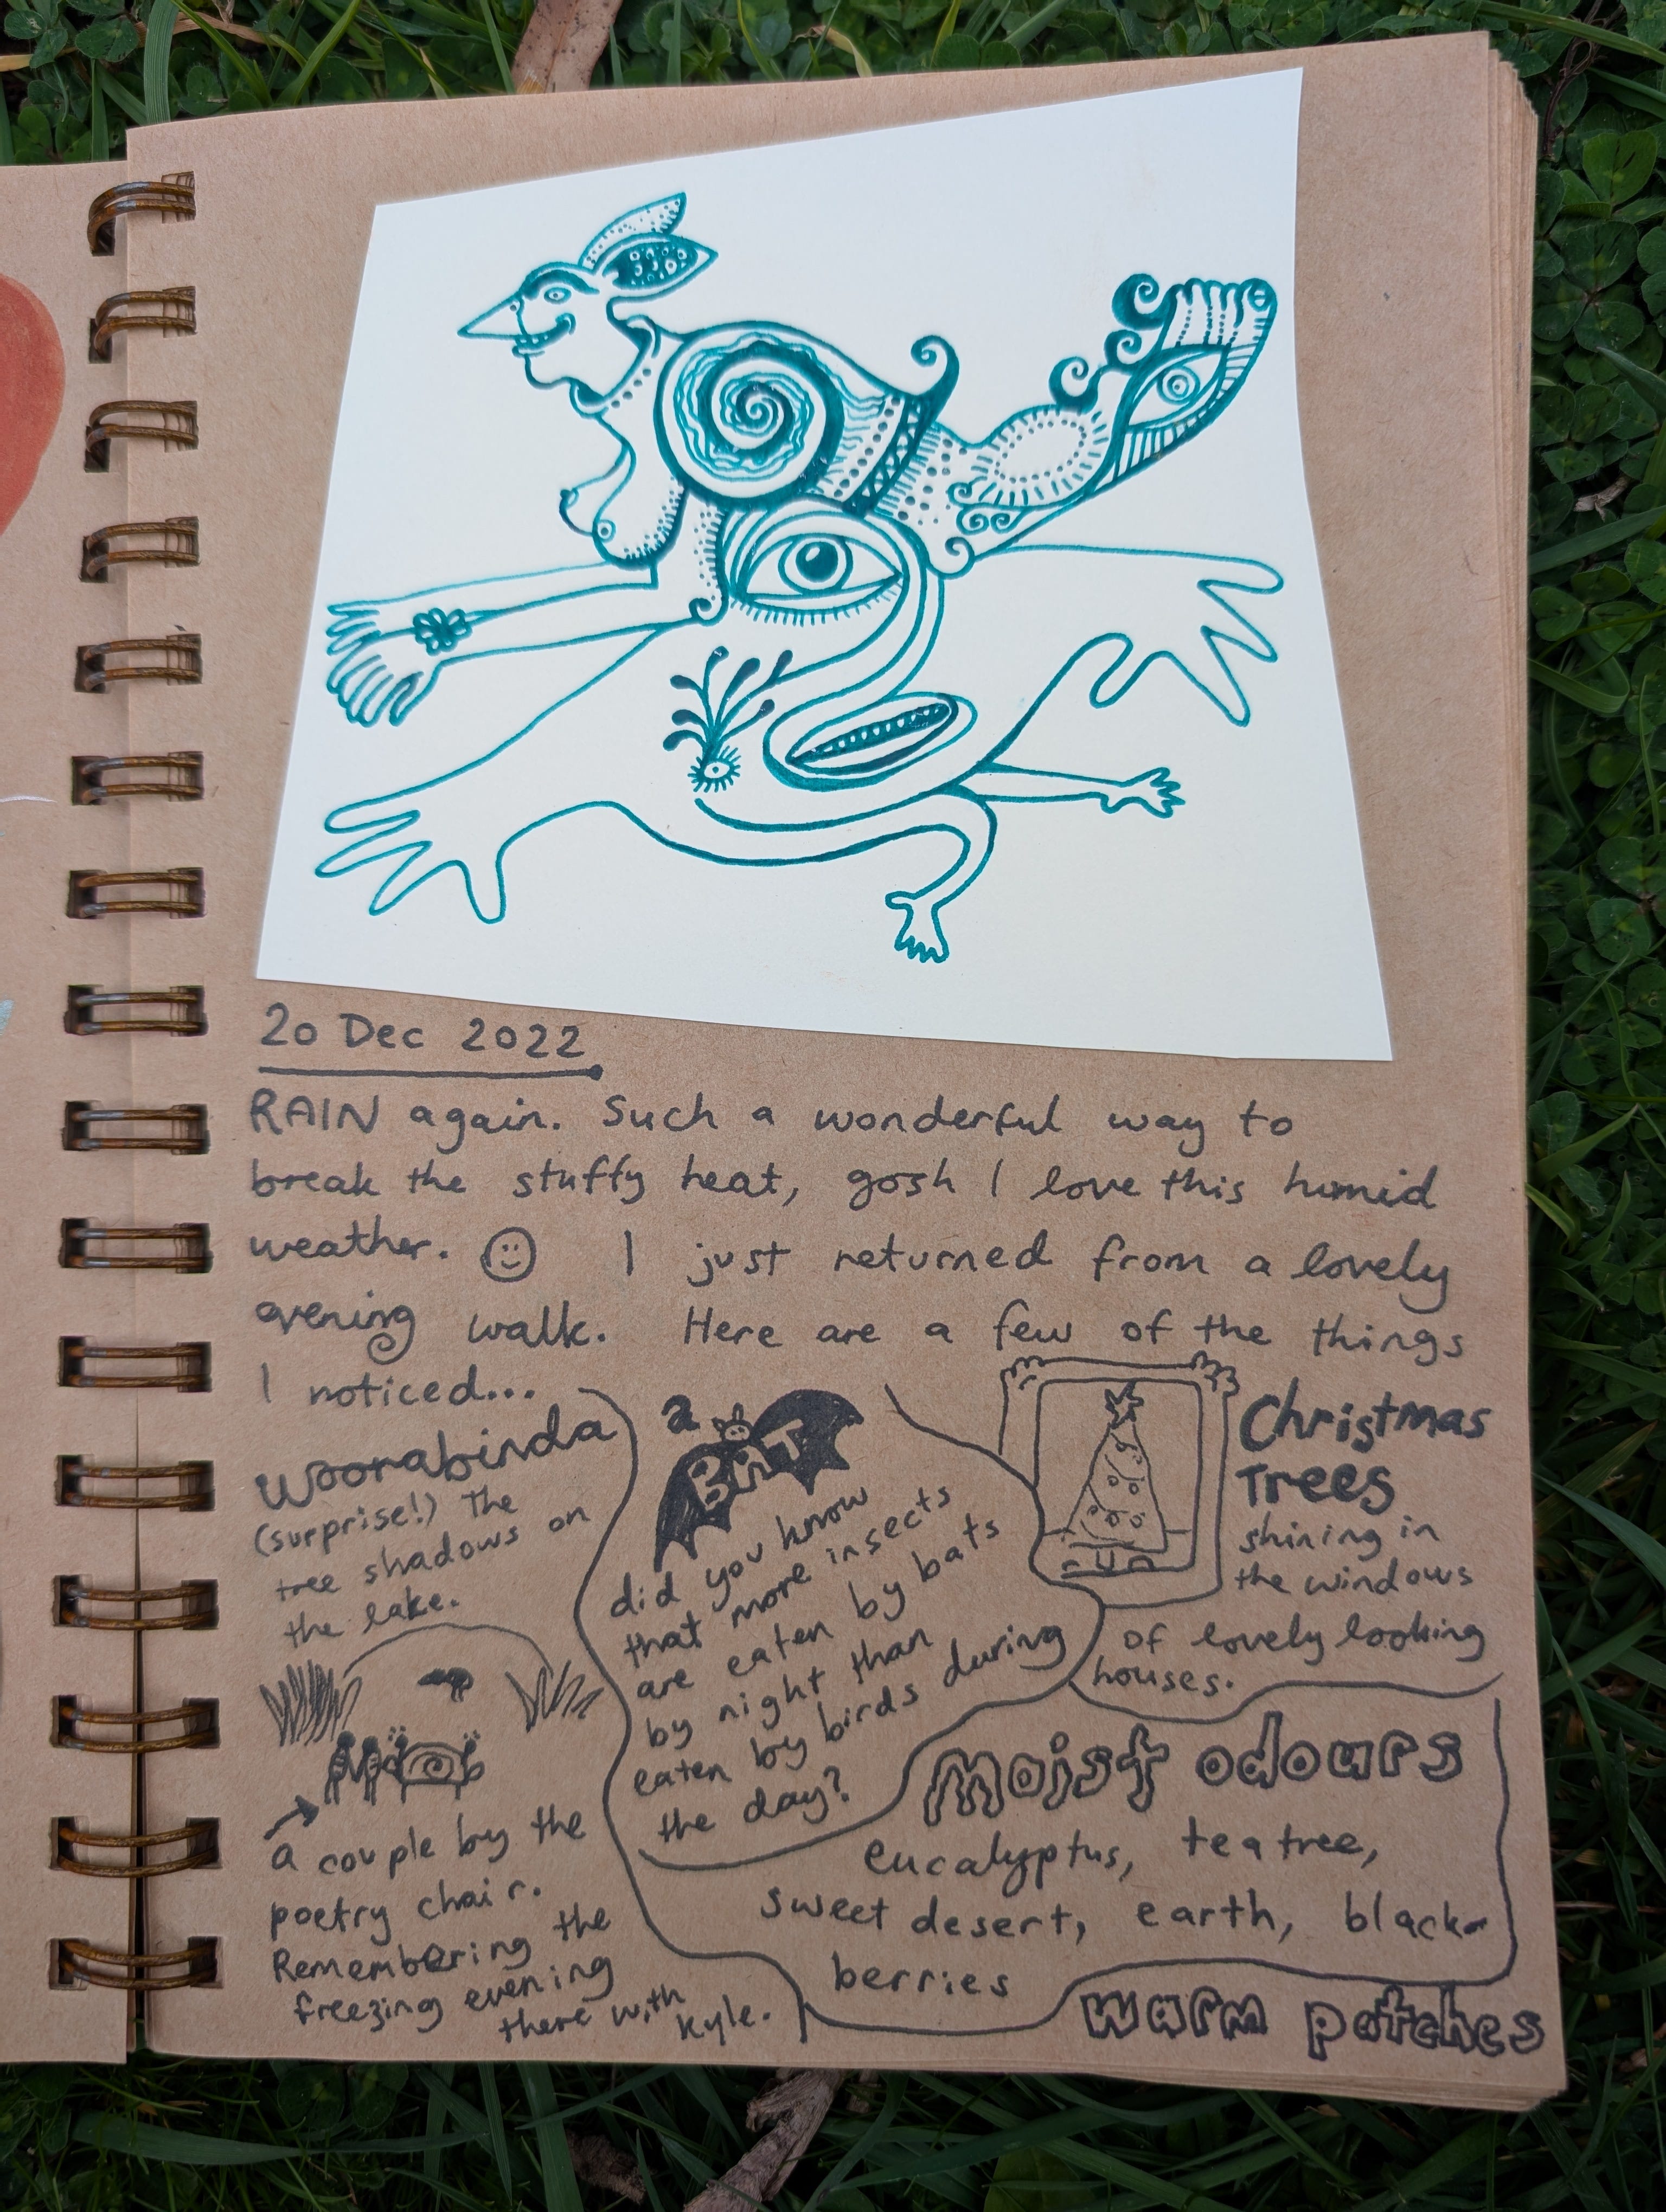 20 Dec 2022
RAIN again. Such a wonderful way to
break the stuffy heat, gosh I love this humid
weather. I just returned from a lovely
evening walk. Here are a few of the things
I noticed...
Woorabinda
(surprise!) The
tree shadows on
the lake.
a couple by the
poetry chair.
Remembering the
freezing evening
there with
Kyle.
a
BAT
did you know
that more insects
are eaten by bats
by night than
eaten by birds during
the day?
Christmas
Trees
shining in
the windows
of lovely looking
houses.
Moist odours
eucalyptus, tea tree,
sweet desert, earth, black
berries
warm patches